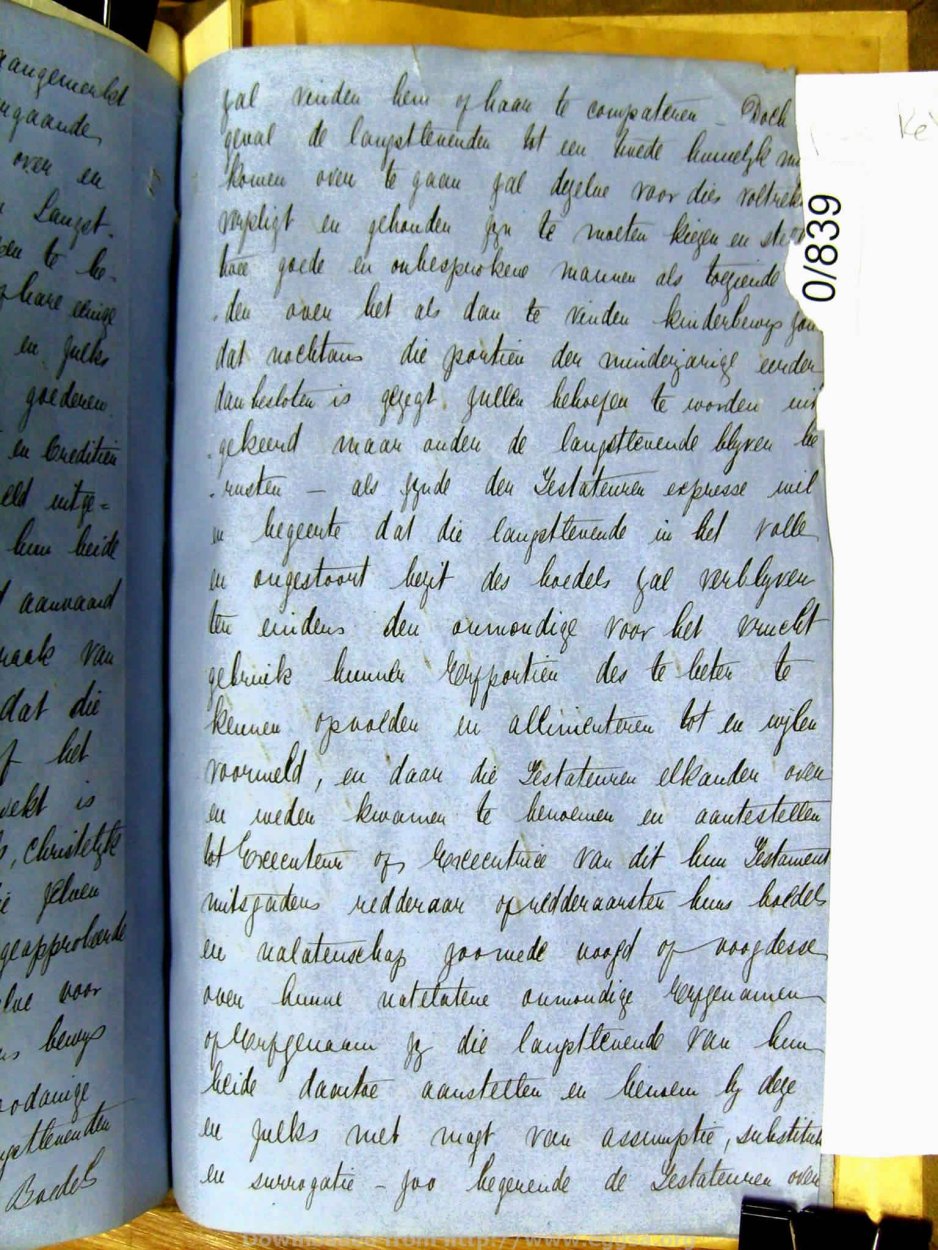 aangemerkt
ngaande
over en
Langst-
en te be-
hare eenige
en zulks
goederen
en Creditien
eld uitge=
hun beide
aanvaard
raak van
dat die
het
wekt is
christelyke
zelven
geapprobeerde
lve voor
bewys
oodanige
gstlevenden
Boedel
zal vinden hem of haar te competeren - Doch
geval de langstlevenden tot een twede huwelyk m
komen over te gaan zal dezelve voor dies voltrek
verpligt en gehouden zyn te moeten kiezen en ste
twee goede en onbesprokene mannen als toeziende
den over het als dan te vinden kinderbewys zon
dat nochtans die portien der minderjarige eerder
dan besloten is gezegt zullen behoefen te worden uit
gekeerd maar onder de langstlevende blyven be
rusten - als zynde der Testateuren expresse wil
en begeerte dat die langstlevende in het volle
en ongestoort bezit des boedels zal verblyven
ten eindens den onmondige voor het vrucht
gebruik hunner Erfportien des te beter te
kennen opvoeden en allimenteren tot en wylen
voormeld, en daar die Testateuren elkander over
en weder kwamen te benoemen en aantestellen
tot Executeur of Executrice van dit hun Testament
mitsgaders redderaar of redderaarsten huns boedels
en nalatenschap zoomede voogd of voogdesse
over hunne natelatene onmondige Erfgenamen
of Erfgenaam zy die langstlevende van hun
beide daartoe aanstellen en benoem by deze
en zulks met magt van assumptie, substitut
en surrogatie - zoo begeerende de Testateuren over
0/839
Downloaded from http://www.eggsa.org